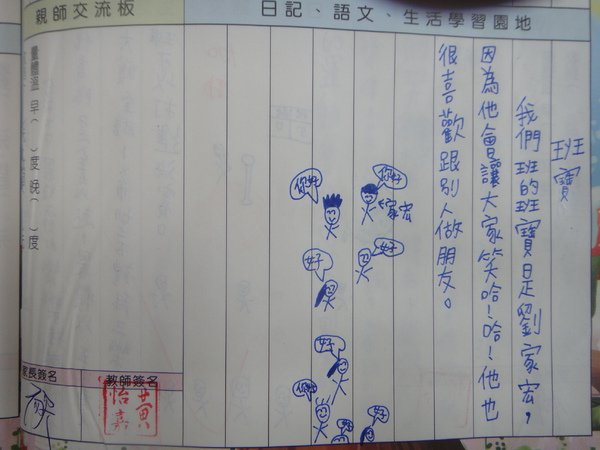 親師交流板
日記、語文、生活學習園地
班寶
我們班的班寶是劉家宏，
因為他會讓大家笑哈！哈！他也
很喜歡跟別人做朋友。
你好
家宏
好
你好
好
好
你好
好
好
量體溫 早（ ）度晚（ ）度
家長簽名
教師簽名
黃怡嘉